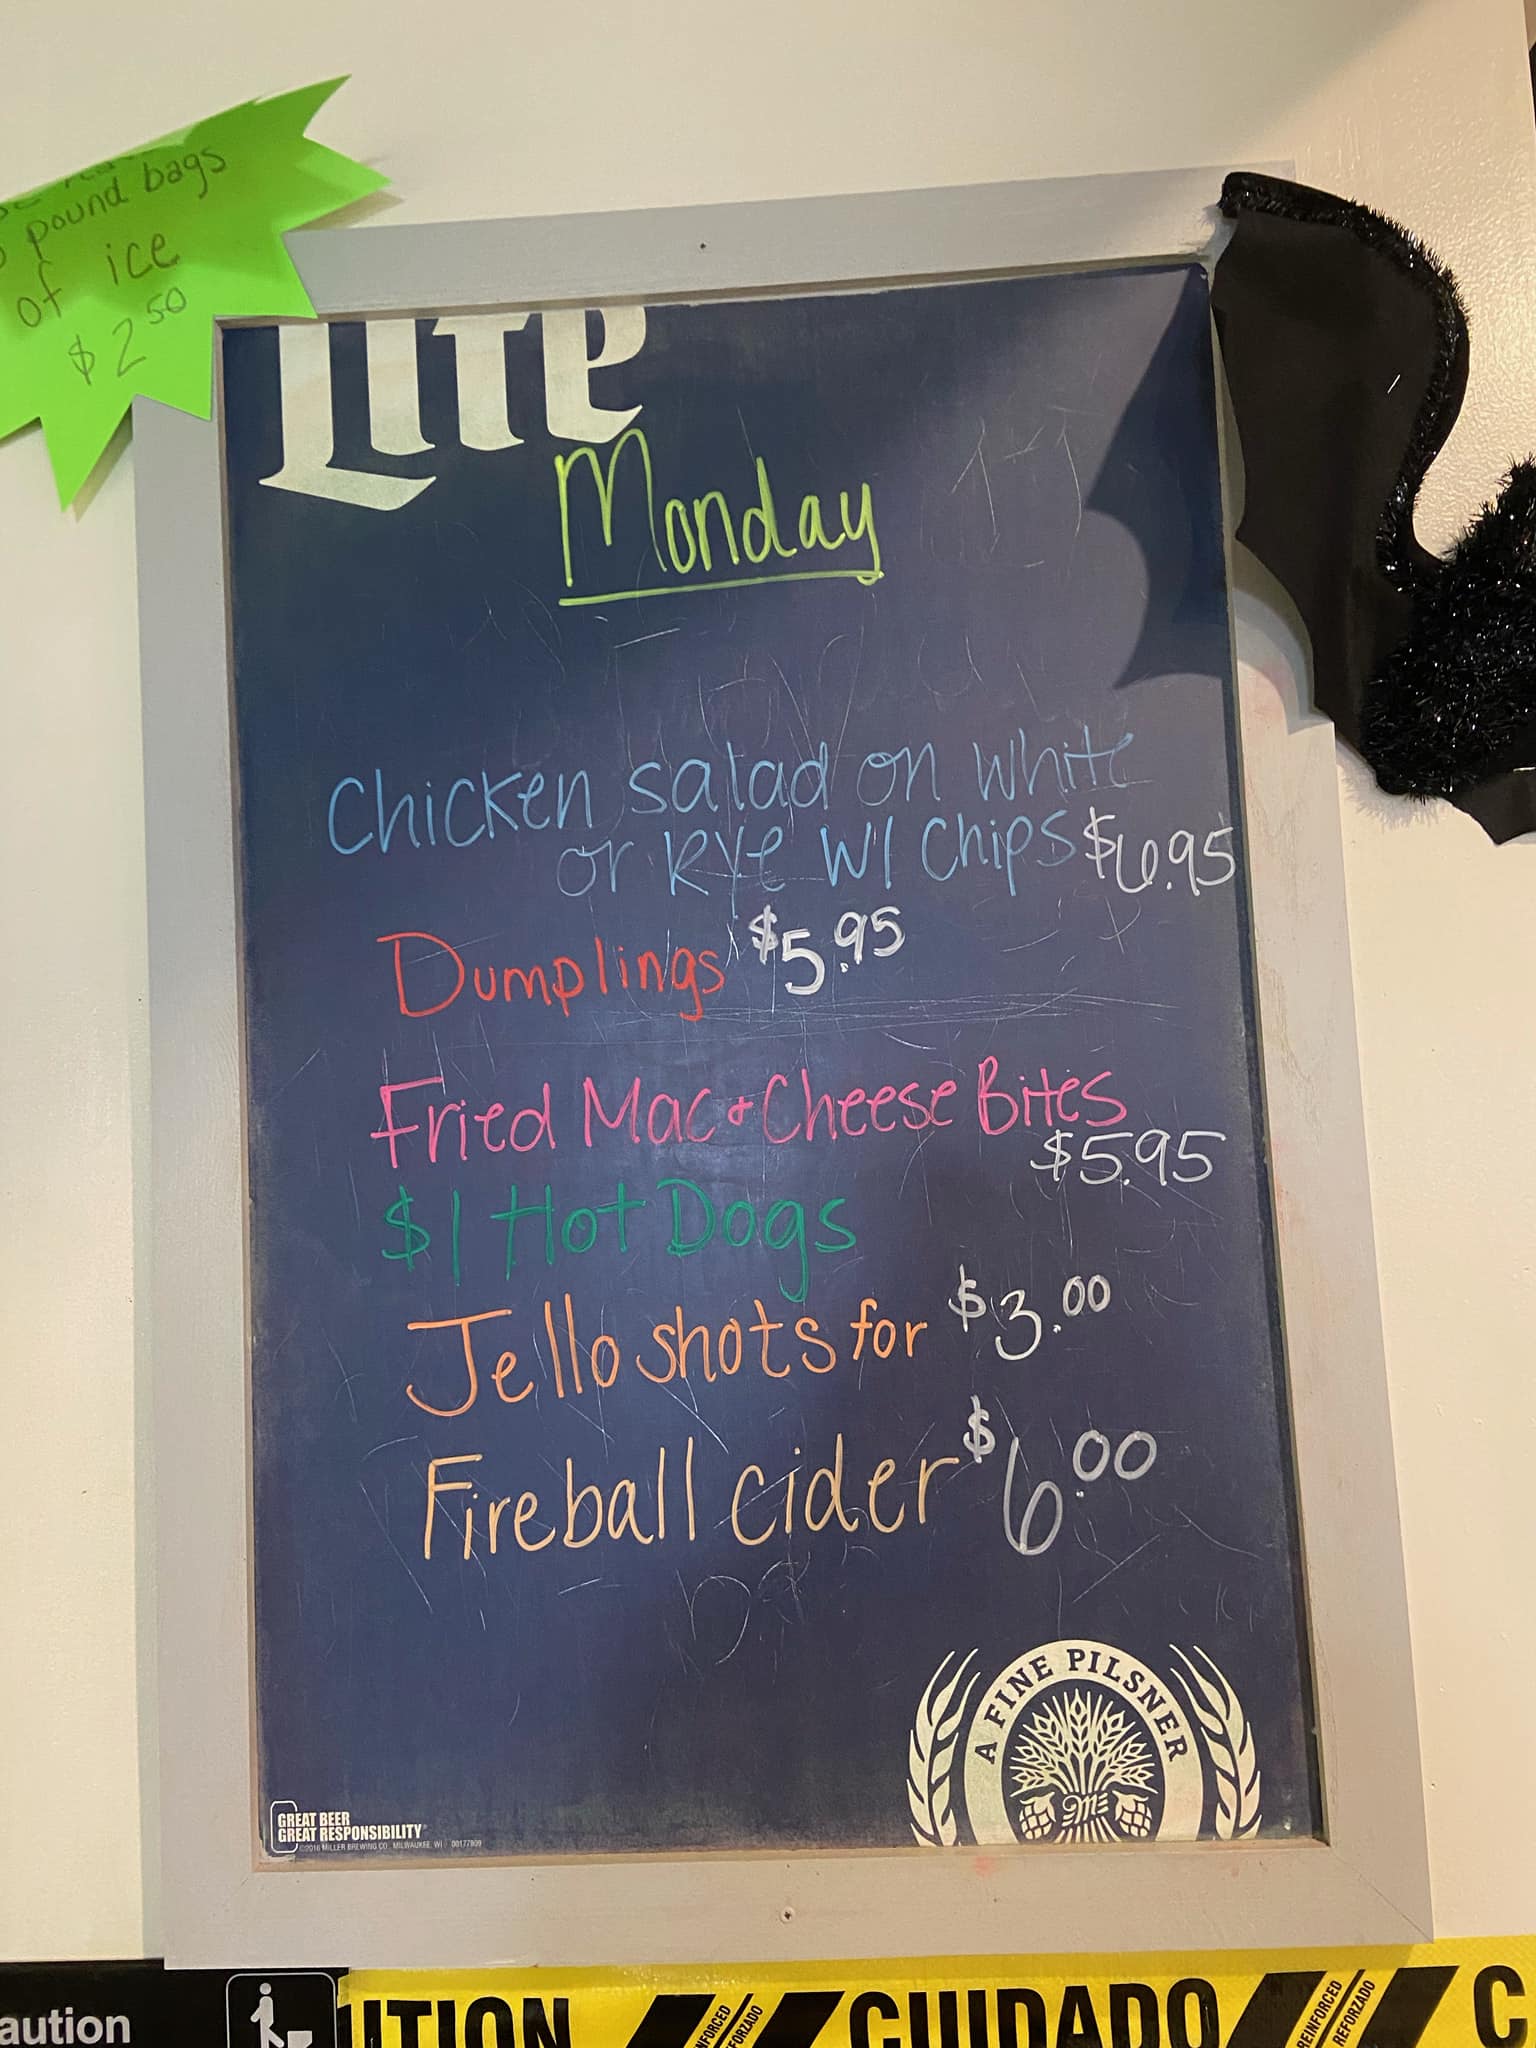 pound bags
of ice
$2.50
Lite
Monday
Chicken salad on white
or Rye W/ Chips $6.95
Dumplings $5.95
Fried Mac & Cheese Bites
$5.95
$1 Hot Dogs
Jello shots for $3.00
Fireball cider $6.00
A FINE PILSNER
GREAT BEER
GREAT RESPONSIBILITY
©2016 MILLER BREWING CO., MILWAUKEE, WI 00177809
aution
UTION REINFORCED REFORZADO CUIDADO REINFORCED REFORZADO C